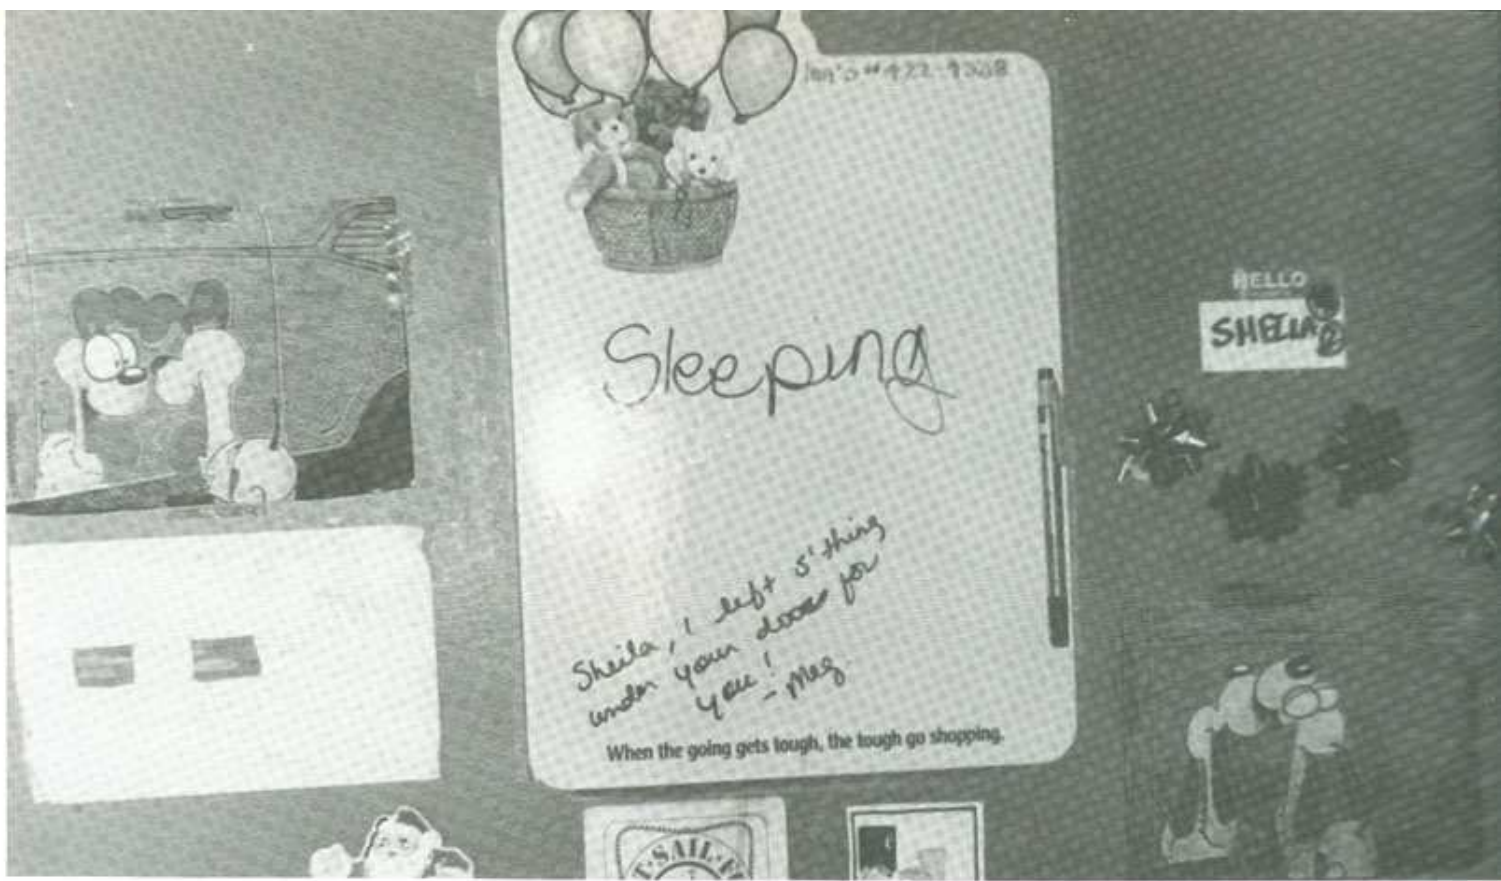 HELLO
SHEILA
Sleeping
Sheila, I left s'thing
under your door for
you!
- Meg
When the going gets tough, the tough go shopping.
SAIL